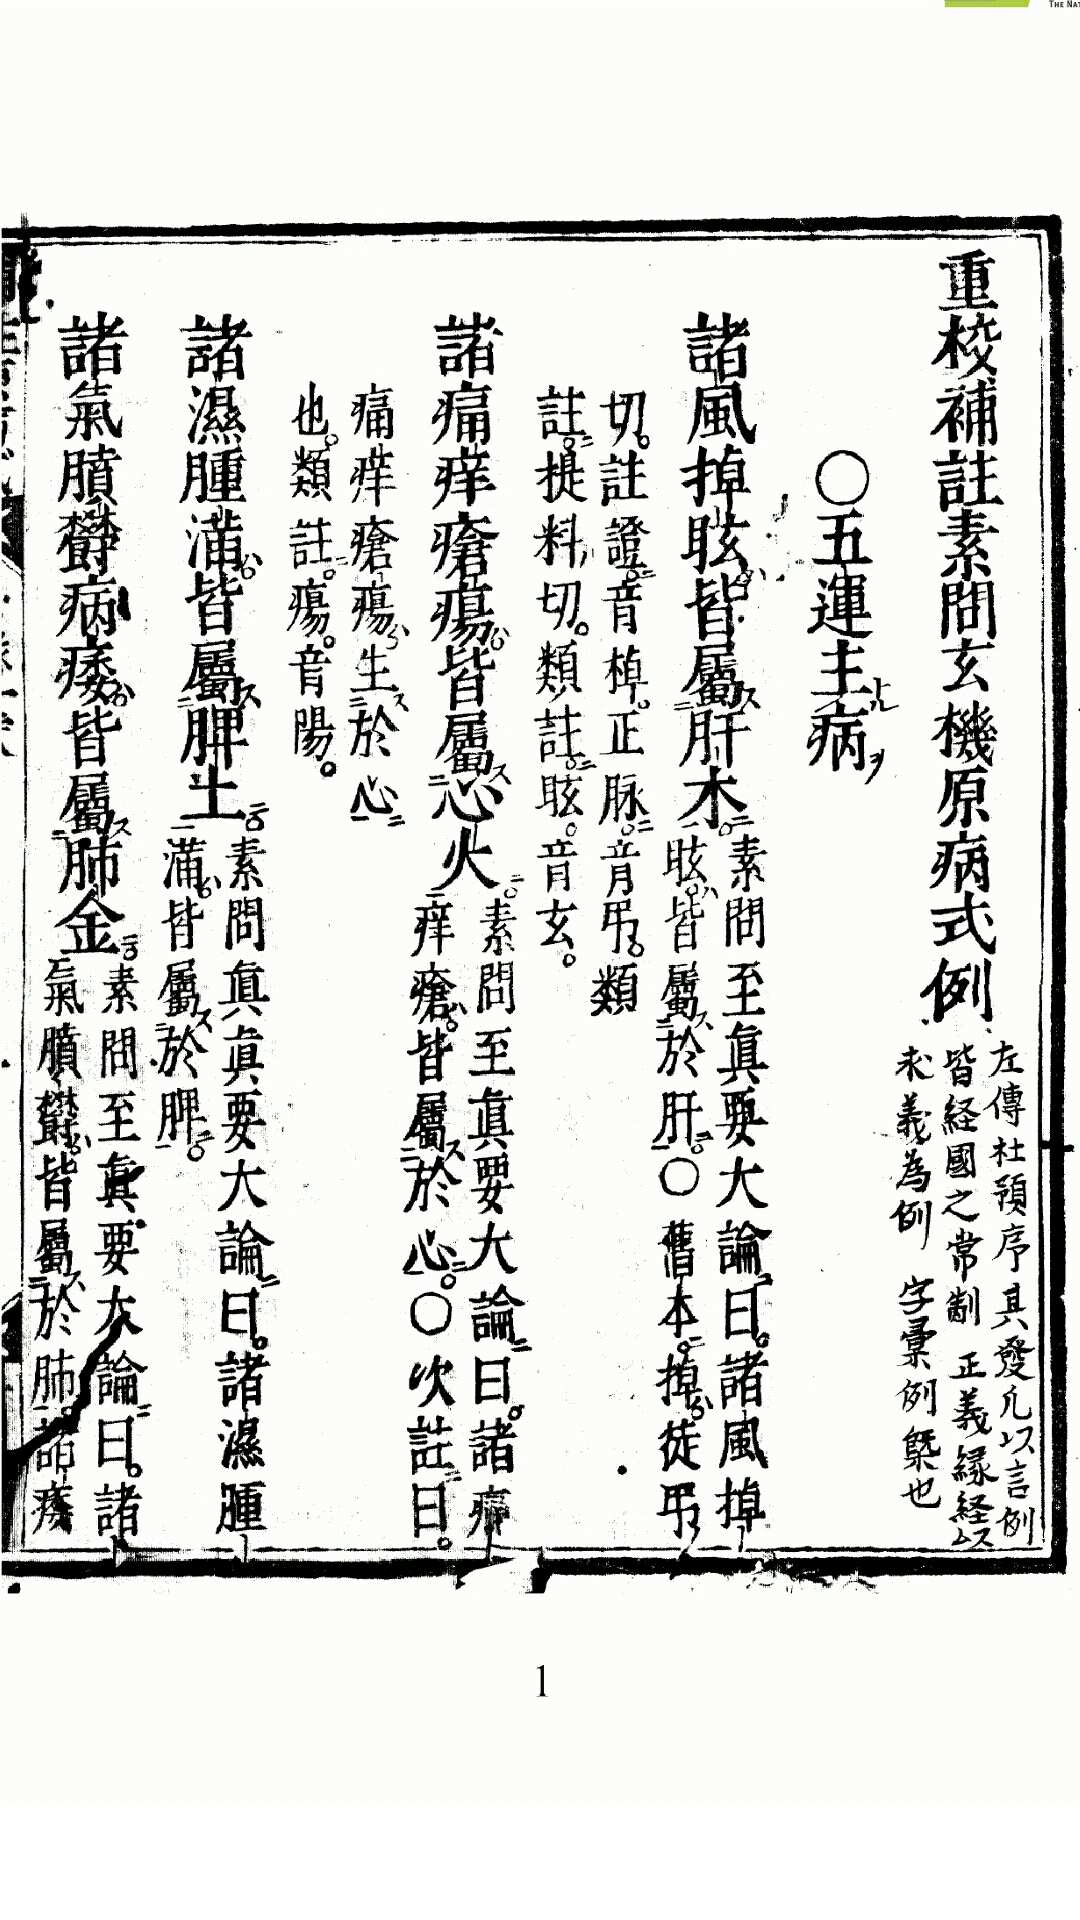 THE NAT
重校補註素問玄機原病式例
左傳杜預序其發凡以言例
皆経國之常制 正義縁経以
求義為例 字彙例槩也
○五運主病
諸風掉眩皆屬肝木
素問至眞要大論曰。諸風掉
眩皆屬於肝。○曹本掉徒弔
切。註證音棹。正脉。音弔。類
註。提料切。類註眩。音玄。
諸痛痒瘡瘍皆屬心火
素問至眞要大論曰。諸痛
痒瘡皆屬於心。○次註曰。
痛痒瘡瘍生於心
也。類註。瘍。音陽。
諸濕腫滿皆屬脾土
素問眞眞要大論曰。諸濕腫
滿皆屬於脾。
諸氣膹欝病痿皆屬肺金
素問至眞要大論曰。諸
氣膹欝皆屬於肺。諸痿
1